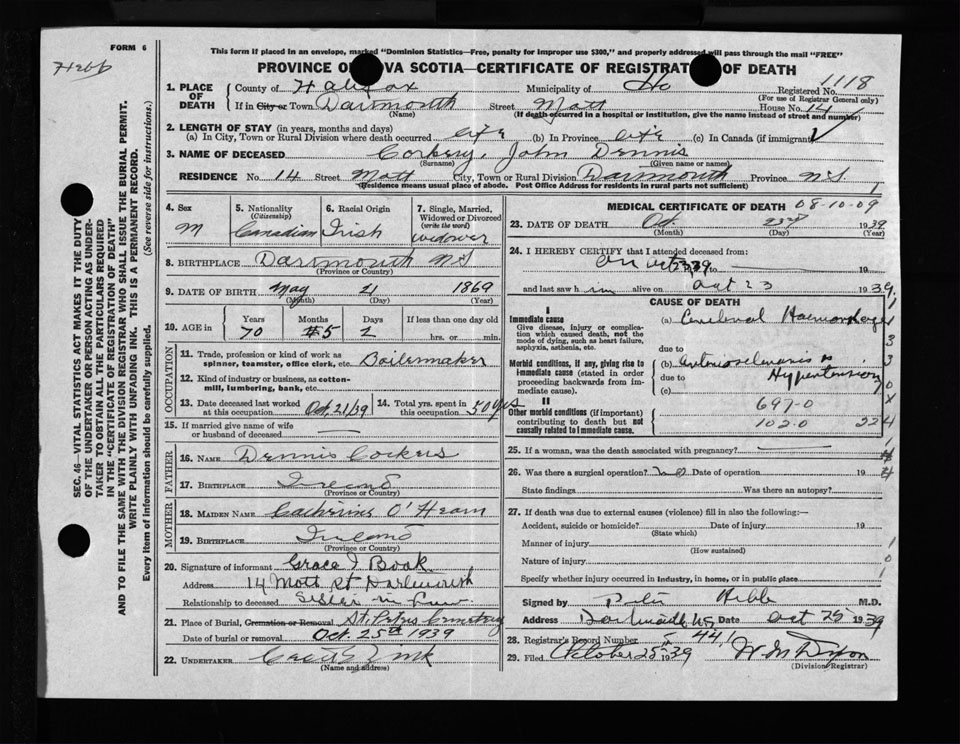 FORM 6
This form if placed in an envelope, marked "Dominion Statistics—Free, penalty for improper use $300," and properly addressed will pass through the mail "FREE"
PROVINCE OF NOVA SCOTIA—CERTIFICATE OF REGISTRATION OF DEATH
1118
Registered No.
(For use of Registrar General only)
1. PLACE OF DEATH
County of Halifax Municipality of
In City or Town Dartmouth Street Mott House No. 14
(Name) (If death occurred in a hospital or institution, give the name instead of street and number)
2. LENGTH OF STAY (in years, months and days)
(a) In City, Town or Rural Division where death occurred life (b) In Province life (c) In Canada (if immigrant)
3. NAME OF DECEASED Corkery, John Dennis
(Surname) (Given name or names)
RESIDENCE No. 14 Street Mott City, Town or Rural Division Dartmouth Province N.S.
(Residence means usual place of abode. Post Office Address for residents in rural parts not sufficient)
4. Sex M
5. Nationality (Citizenship) Canadian
6. Racial Origin Irish
7. Single, Married, Widowed or Divorced (write the word) widower
8. BIRTHPLACE Dartmouth N.S
(Province or Country)
9. DATE OF BIRTH May 21 1869
(Month) (Day) (Year)
10. AGE in Years Months Days If less than one day old
70 5 2 hrs. or min.
OCCUPATION
11. Trade, profession or kind of work as spinner, teamster, office clerk, etc. Boilermaker
12. Kind of industry or business, as cotton-mill, lumbering, bank, etc.
13. Date deceased last worked at this occupation Oct, 21/39
14. Total yrs. spent in this occupation 50 yrs
15. If married give name of wife or husband of deceased
FATHER
16. NAME Dennis
17. BIRTHPLACE Ireland
(Province or Country)
MOTHER
18. MAIDEN NAME Catherine O'Hearn
19. BIRTHPLACE Ireland
(Province or Country)
20. Signature of informant Grace I Book
Address 14 Mott St Dartmouth
Relationship to deceased Sister in Law
21. Place of Burial, Cremation or Removal St. Peters Cemetery
Date of burial or removal Oct. 25th 1939
22. UNDERTAKER Zink
(Name and address)
MEDICAL CERTIFICATE OF DEATH 08-10-09
23. DATE OF DEATH Oct 23rd 1939
(Month) (Day) (Year)
24. I HEREBY CERTIFY that I attended deceased from:
on Oct 19 to 19
and last saw him alive on Oct 23 1939
CAUSE OF DEATH
I
Immediate cause
Give disease, injury or complication which caused death, not the mode of dying, such as heart failure, asphyxia, asthenia, etc.
(a) Cerebral Haemorrhage
due to
Morbid conditions, if any, giving rise to immediate cause (stated in order proceeding backwards from immediate cause).
(b) Arteriosclerosis
due to Hypertension
(c)
II
Other morbid conditions (if important) contributing to death but not causally related to immediate cause.
697-0
102-0 224
25. If a woman, was the death associated with pregnancy?
26. Was there a surgical operation? no Date of operation 19
State findings Was there an autopsy?
27. If death was due to external causes (violence) fill in also the following:—
Accident, suicide or homicide? Date of injury 19
(State which)
Manner of injury
(How sustained)
Nature of injury
Specify whether injury occurred in industry, in home, or in public place
Signed by M.D.
Address Dartmouth NS Date Oct 25 1939
28. Registrar's Record Number 441
29. Filed October 25 1939 W M Dixon
(Division Registrar)
SEC. 46—VITAL STATISTICS ACT MAKES IT THE DUTY OF THE UNDERTAKER OR PERSON ACTING AS UNDERTAKER TO OBTAIN ALL THE PARTICULARS REQUIRED IN THE "CERTIFICATE OF REGISTRATION OF DEATH" AND TO FILE THE SAME WITH THE DIVISION REGISTRAR WHO SHALL ISSUE THE BURIAL PERMIT.
WRITE PLAINLY WITH UNFADING INK. THIS IS A PERMANENT RECORD.
Every item of information should be carefully supplied. (See reverse side for instructions.)